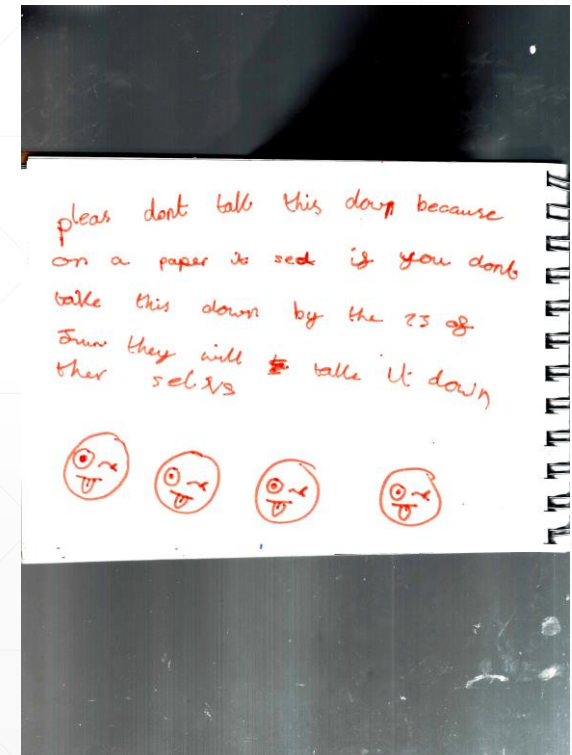 pleas dont talk this down because
on a paper it sed if you dont
take this down by the 23 of
Jun they will talk it down
ther selvs